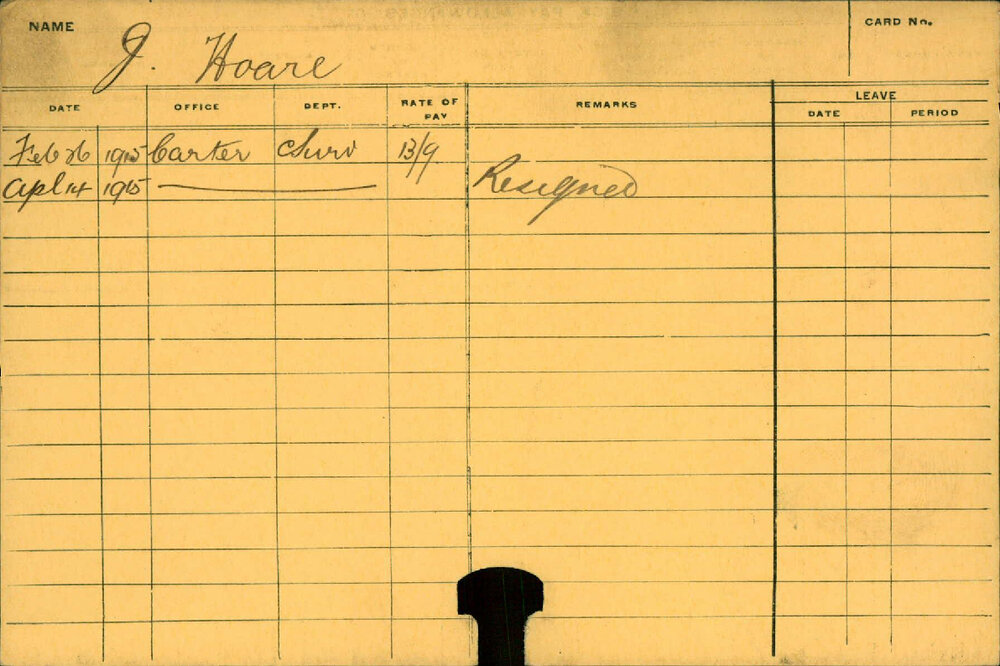 NAME J. Hoare CARD No.
DATE OFFICE DEPT. RATE OF PAY REMARKS LEAVE DATE PERIOD
Feb 26 1915 Carter 13/9
Apl 14 1915 Resigned